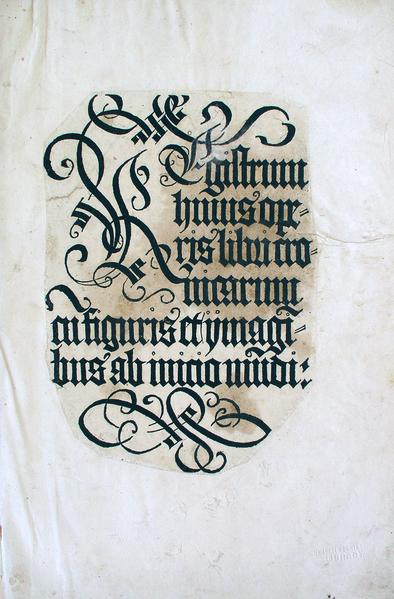 Registrum
huius ope=
ris libri cro
nicarum
cū figuris et ymagī=
bus ab inicio mūdi:
LIBRARY